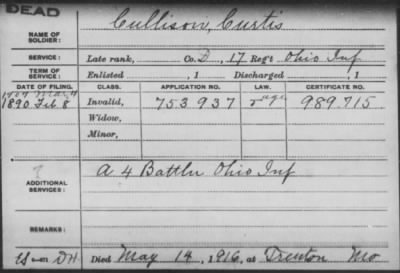 DEAD
NAME OF SOLDIER: Cullison, Curtis
SERVICE: Late rank, Co. D, 17 Reg't Ohio Inf
TERM OF SERVICE: Enlisted , 1 Discharged , 1
DATE OF FILING. CLASS. APPLICATION NO. LAW. CERTIFICATE NO.
1890 Feb 8 Invalid, 753937 989.715
Widow,
Minor,
ADDITIONAL SERVICES: A 4 Battln Ohio Inf
REMARKS:
Died May 14, 1916, at Trenton Mo